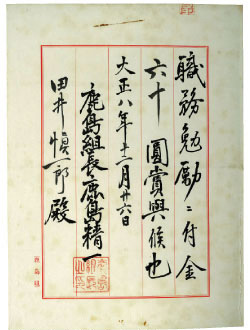 職務勉励ニ付金
六十圓賞與候也
大正八年十二月廿六日
鹿島組長鹿島精一
田井慎一郎殿